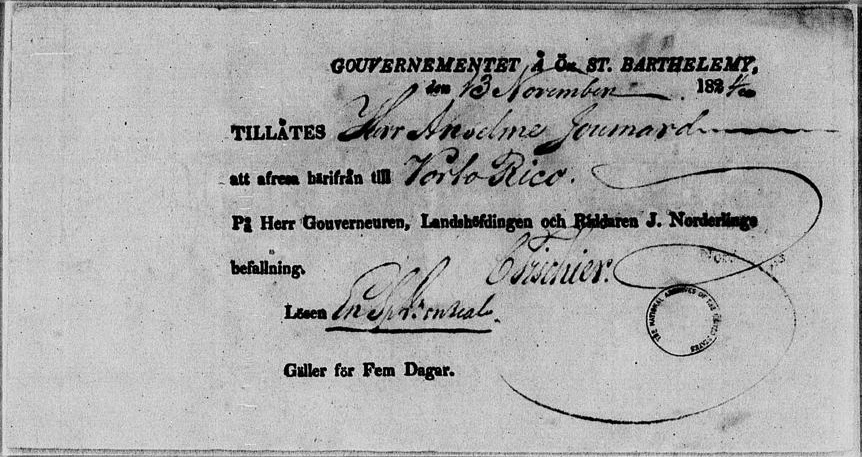 GOUVERNEMENTET Å Ön ST. BARTHELEMY,
den 13 November 1824
TILLÅTES Herr Anselme Joumard
att afresa härifrån till Porto Rico.
På Herr Gouverneuren, Landshöfdingen och Riddaren J. Norderlings
befallning.
Lösen En
Gäller för Fem Dagar.
THE NATIONAL ARCHIVES OF THE UNITED STATES